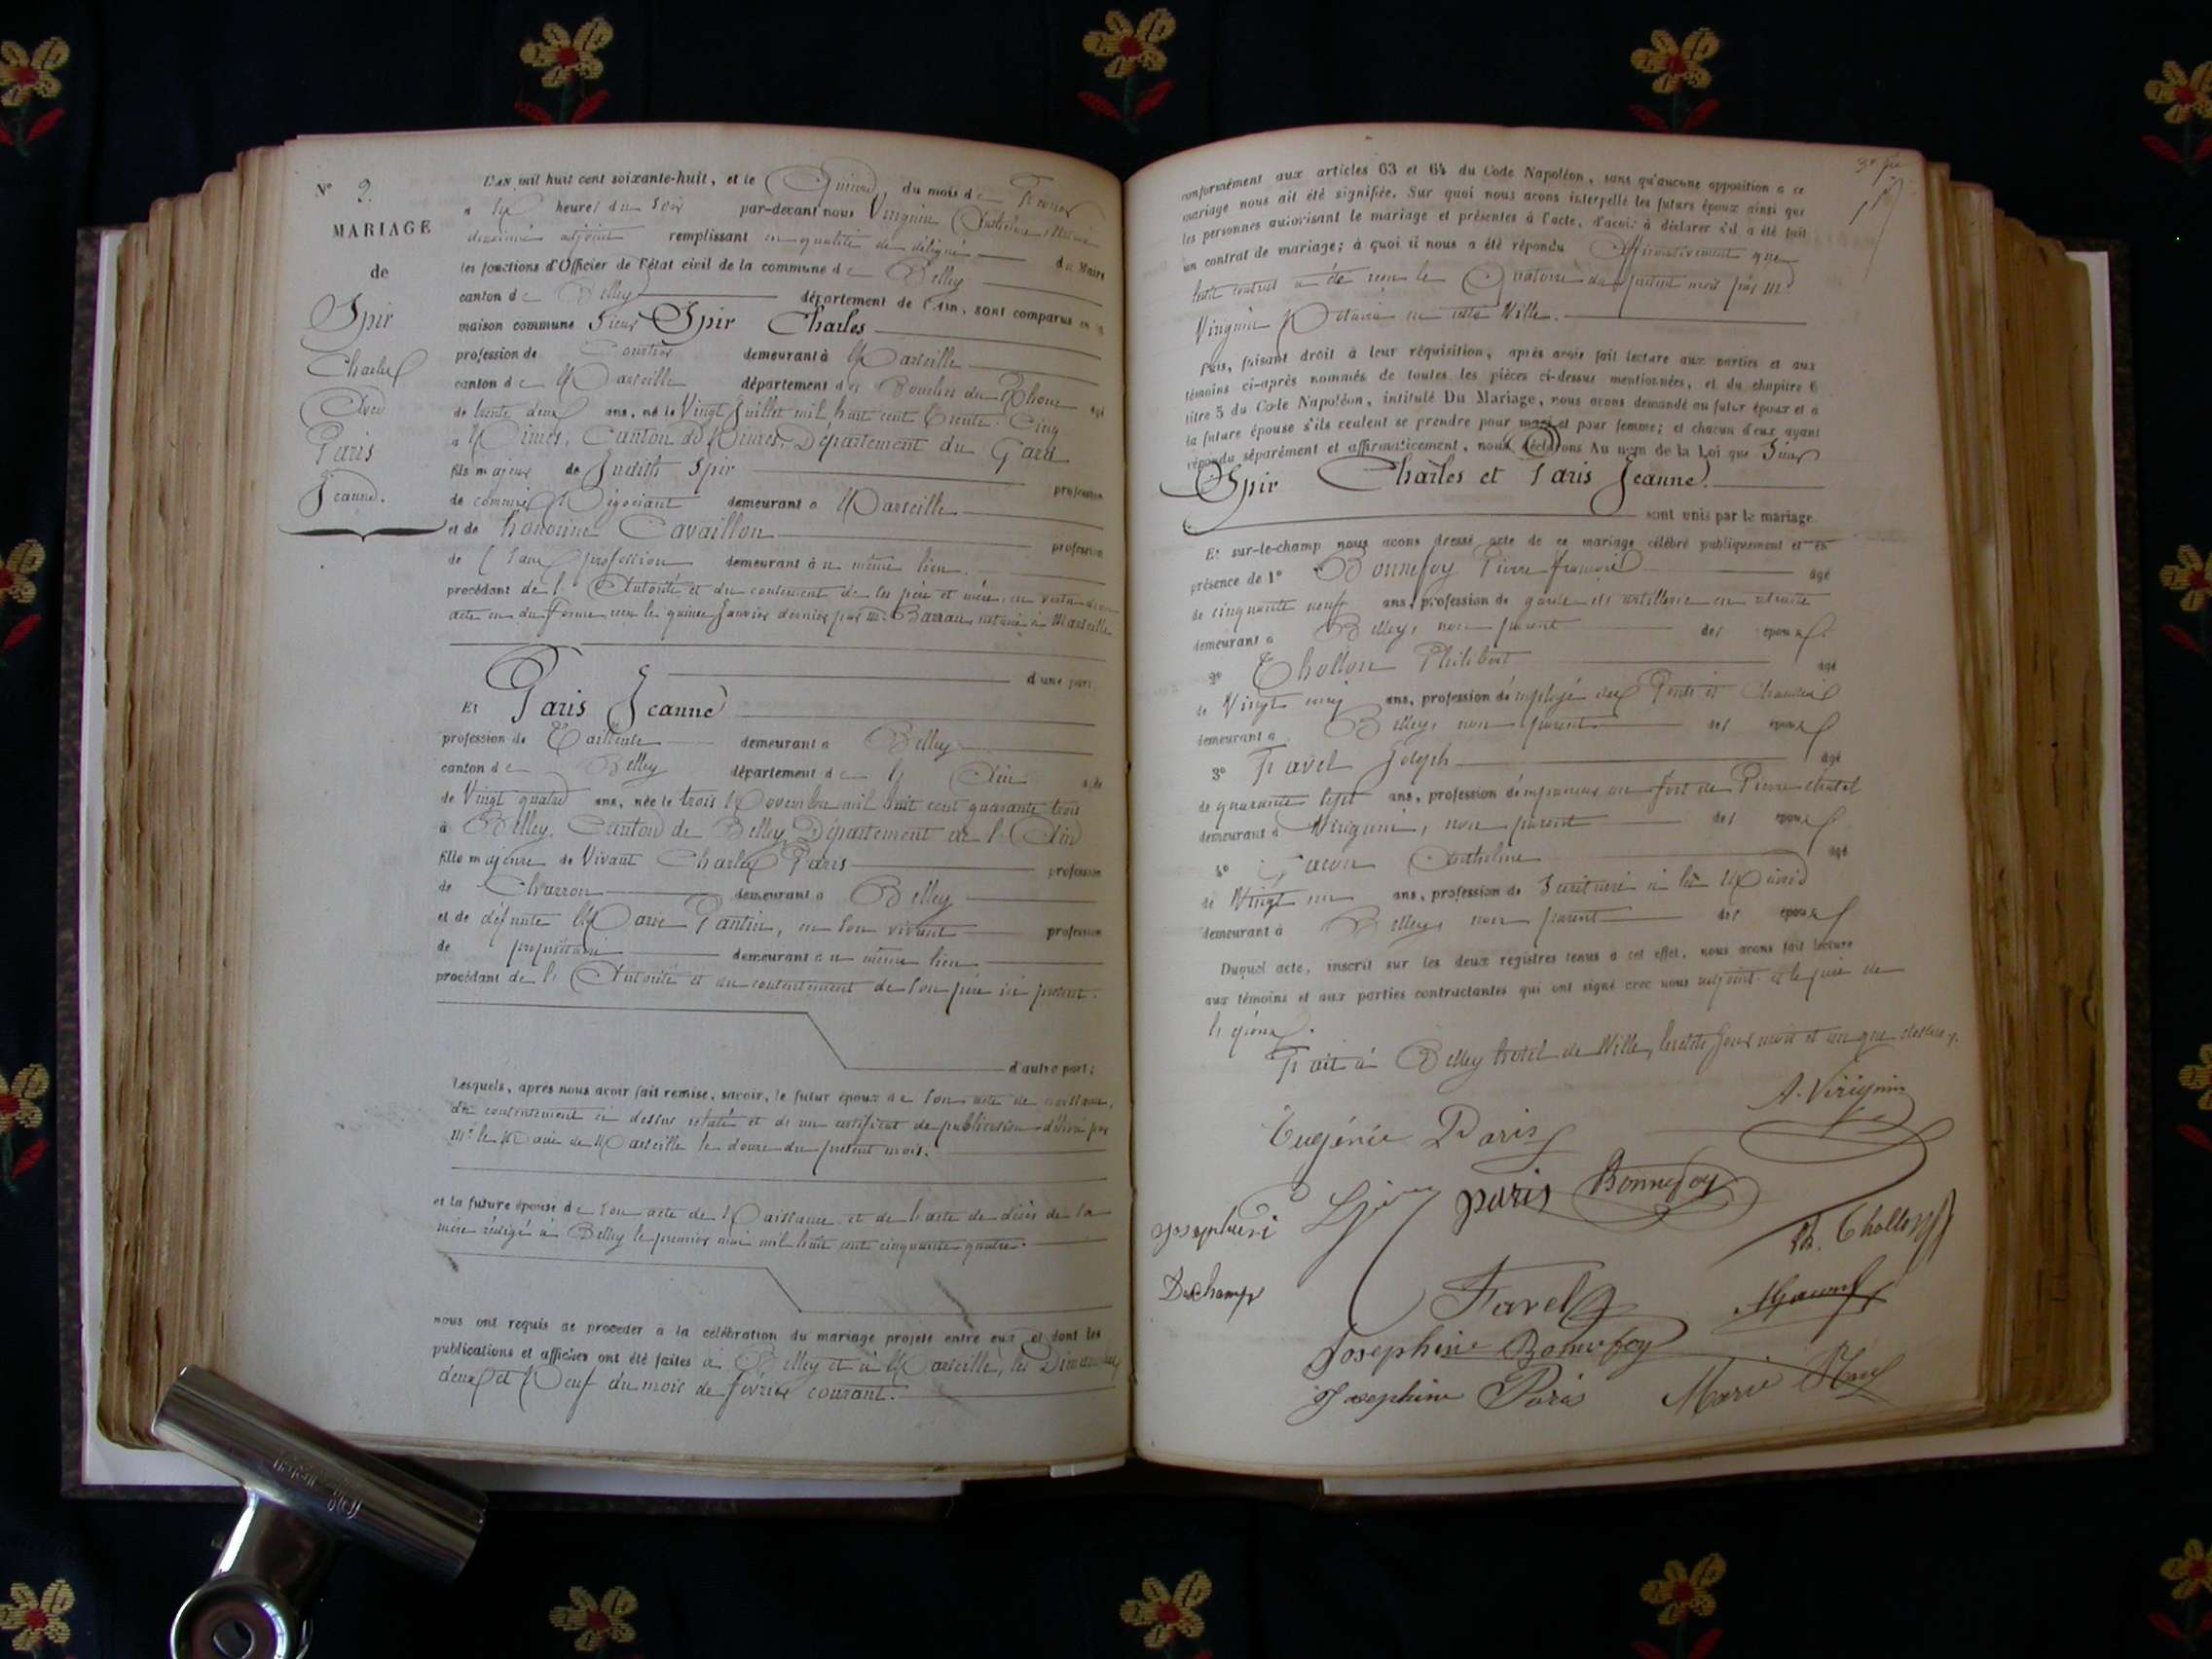 N° 2.
MARIAGE
de
Spir
Charles
Avec
Paris
Jeanne.
L'AN mil huit cent soixante-huit, et le Quinze, du mois de Février
à Six heures du Soir par-devant nous Virignin Anthelme
deuxième adjoint remplissant en qualité de délégué du Maire
les fonctions d'Officier de l'état civil de la commune de Belley
canton de Belley département de l'Ain, sont comparus en la
maison commune Sieur Spir Charles
profession de Courtier demeurant à Marseille
canton de Marseille département des Bouches du Rhône âgé
de trente deux ans, né le Vingt Juillet mil huit cent Trente Cinq
à Nîmes, Canton de Nîmes, Département du Gard
fils majeur de Judith Spir profession
de commis Négociant demeurant à Marseille
et de Honorine Cavaillon profession
de Sans profession demeurant au même lieu.
procédant de l'Autorité et du consentement de ses père et mère, en vertu d'un
acte en du forme reçu le quinze Janvier dernier par Me Barrau notaire à Marseille
d'une part
Et Paris Jeanne
profession de Tailleuse demeurant à Belley
canton de Belley département de l'Ain âgée
de Vingt quatre ans, née le trois Novembre mil huit cent quarante trois
à Belley, Canton de Belley, Département de l'Ain
fille majeure de Vivant Charles Paris profession
de Charron demeurant à Belley
et de défunte Marie Pantin, en son vivant profession
de propriétaire demeurant au même lieu
procédant de l'Autorité et du consentement de son père ici présent.
d'autre part;
Lesquels, après nous avoir fait remise, savoir, le futur époux de son acte de naissance,
du consentement ci dessus relaté et de un certificat de publication délivré par
Mr le Maire de Marseille le douze du présent mois.
et la future épouse de son acte de Naissance et de l'acte de décès de sa
mère rédigé à Belley le premier mai mil huit cent cinquante quatre.
nous ont requis de procéder à la célébration du mariage projeté entre eux et dont les
publications et affiches ont été faites à Belley et à Marseille, les Dimanches
deux et Neuf du mois de février courant.
conformément aux articles 63 et 64 du Code Napoléon, sans qu'aucune opposition à ce
mariage nous ait été signifiée. Sur quoi nous avons interpellé les futurs époux ainsi que
les personnes autorisant le mariage et présentes à l'acte, d'avoir à déclarer s'il a été fait
un contrat de mariage; à quoi il nous a été répondu Affirmativement que
ledit contrat a été reçu le Quatorze du présent mois par Me
Virignin Notaire en cette Ville.
Puis, faisant droit à leur réquisition, après avoir fait lecture aux parties et aux
témoins ci-après nommés de toutes les pièces ci-dessus mentionnées, et du chapitre 6
titre 5 du Code Napoléon, intitulé Du Mariage, nous avons demandé au futur époux et à
la future épouse s'ils veulent se prendre pour mari et pour femme; et chacun d'eux ayant
répondu séparément et affirmativement, nous déclarons Au nom de la Loi que Sieur
Spir Charles et Paris Jeanne.
sont unis par le mariage.
Et sur-le-champ nous avons dressé acte de ce mariage célébré publiquement et en
présence de 1° Bonnefoy Pierre françois âgé
de cinquante neuf ans, profession de garde d'artillerie en retraite
demeurant à Belley, non parent des époux.
2° Thollon Philibert âgé
de Vingt cinq ans, profession d'employé des Ponts et Chaussées
demeurant à Belley, non parent des époux
3° Favel Joseph âgé
de quarante sept ans, profession d'emprunteur au fort de Pierre châtel
demeurant à Virignin, non parent des époux
4° Anthelme âgé
de Vingt un ans, profession de Secrétaire à la Mairie
demeurant à Belley, non parent des époux
Duquel acte, inscrit sur les deux registres tenus à cet effet, nous avons fait lecture
aux témoins et aux parties contractantes qui ont signé avec nous adjoint et le père de
l'épouse.
Fait à Belley hotel de Ville, lesdits jour mois et an que dessus.
A. Virignin
Eugénie Paris
Joséphine Spir Paris Bonnefoy
Ph. Thollon
Dechamps
Favel
Josephine Bonnefoy
Josephine Paris Marie